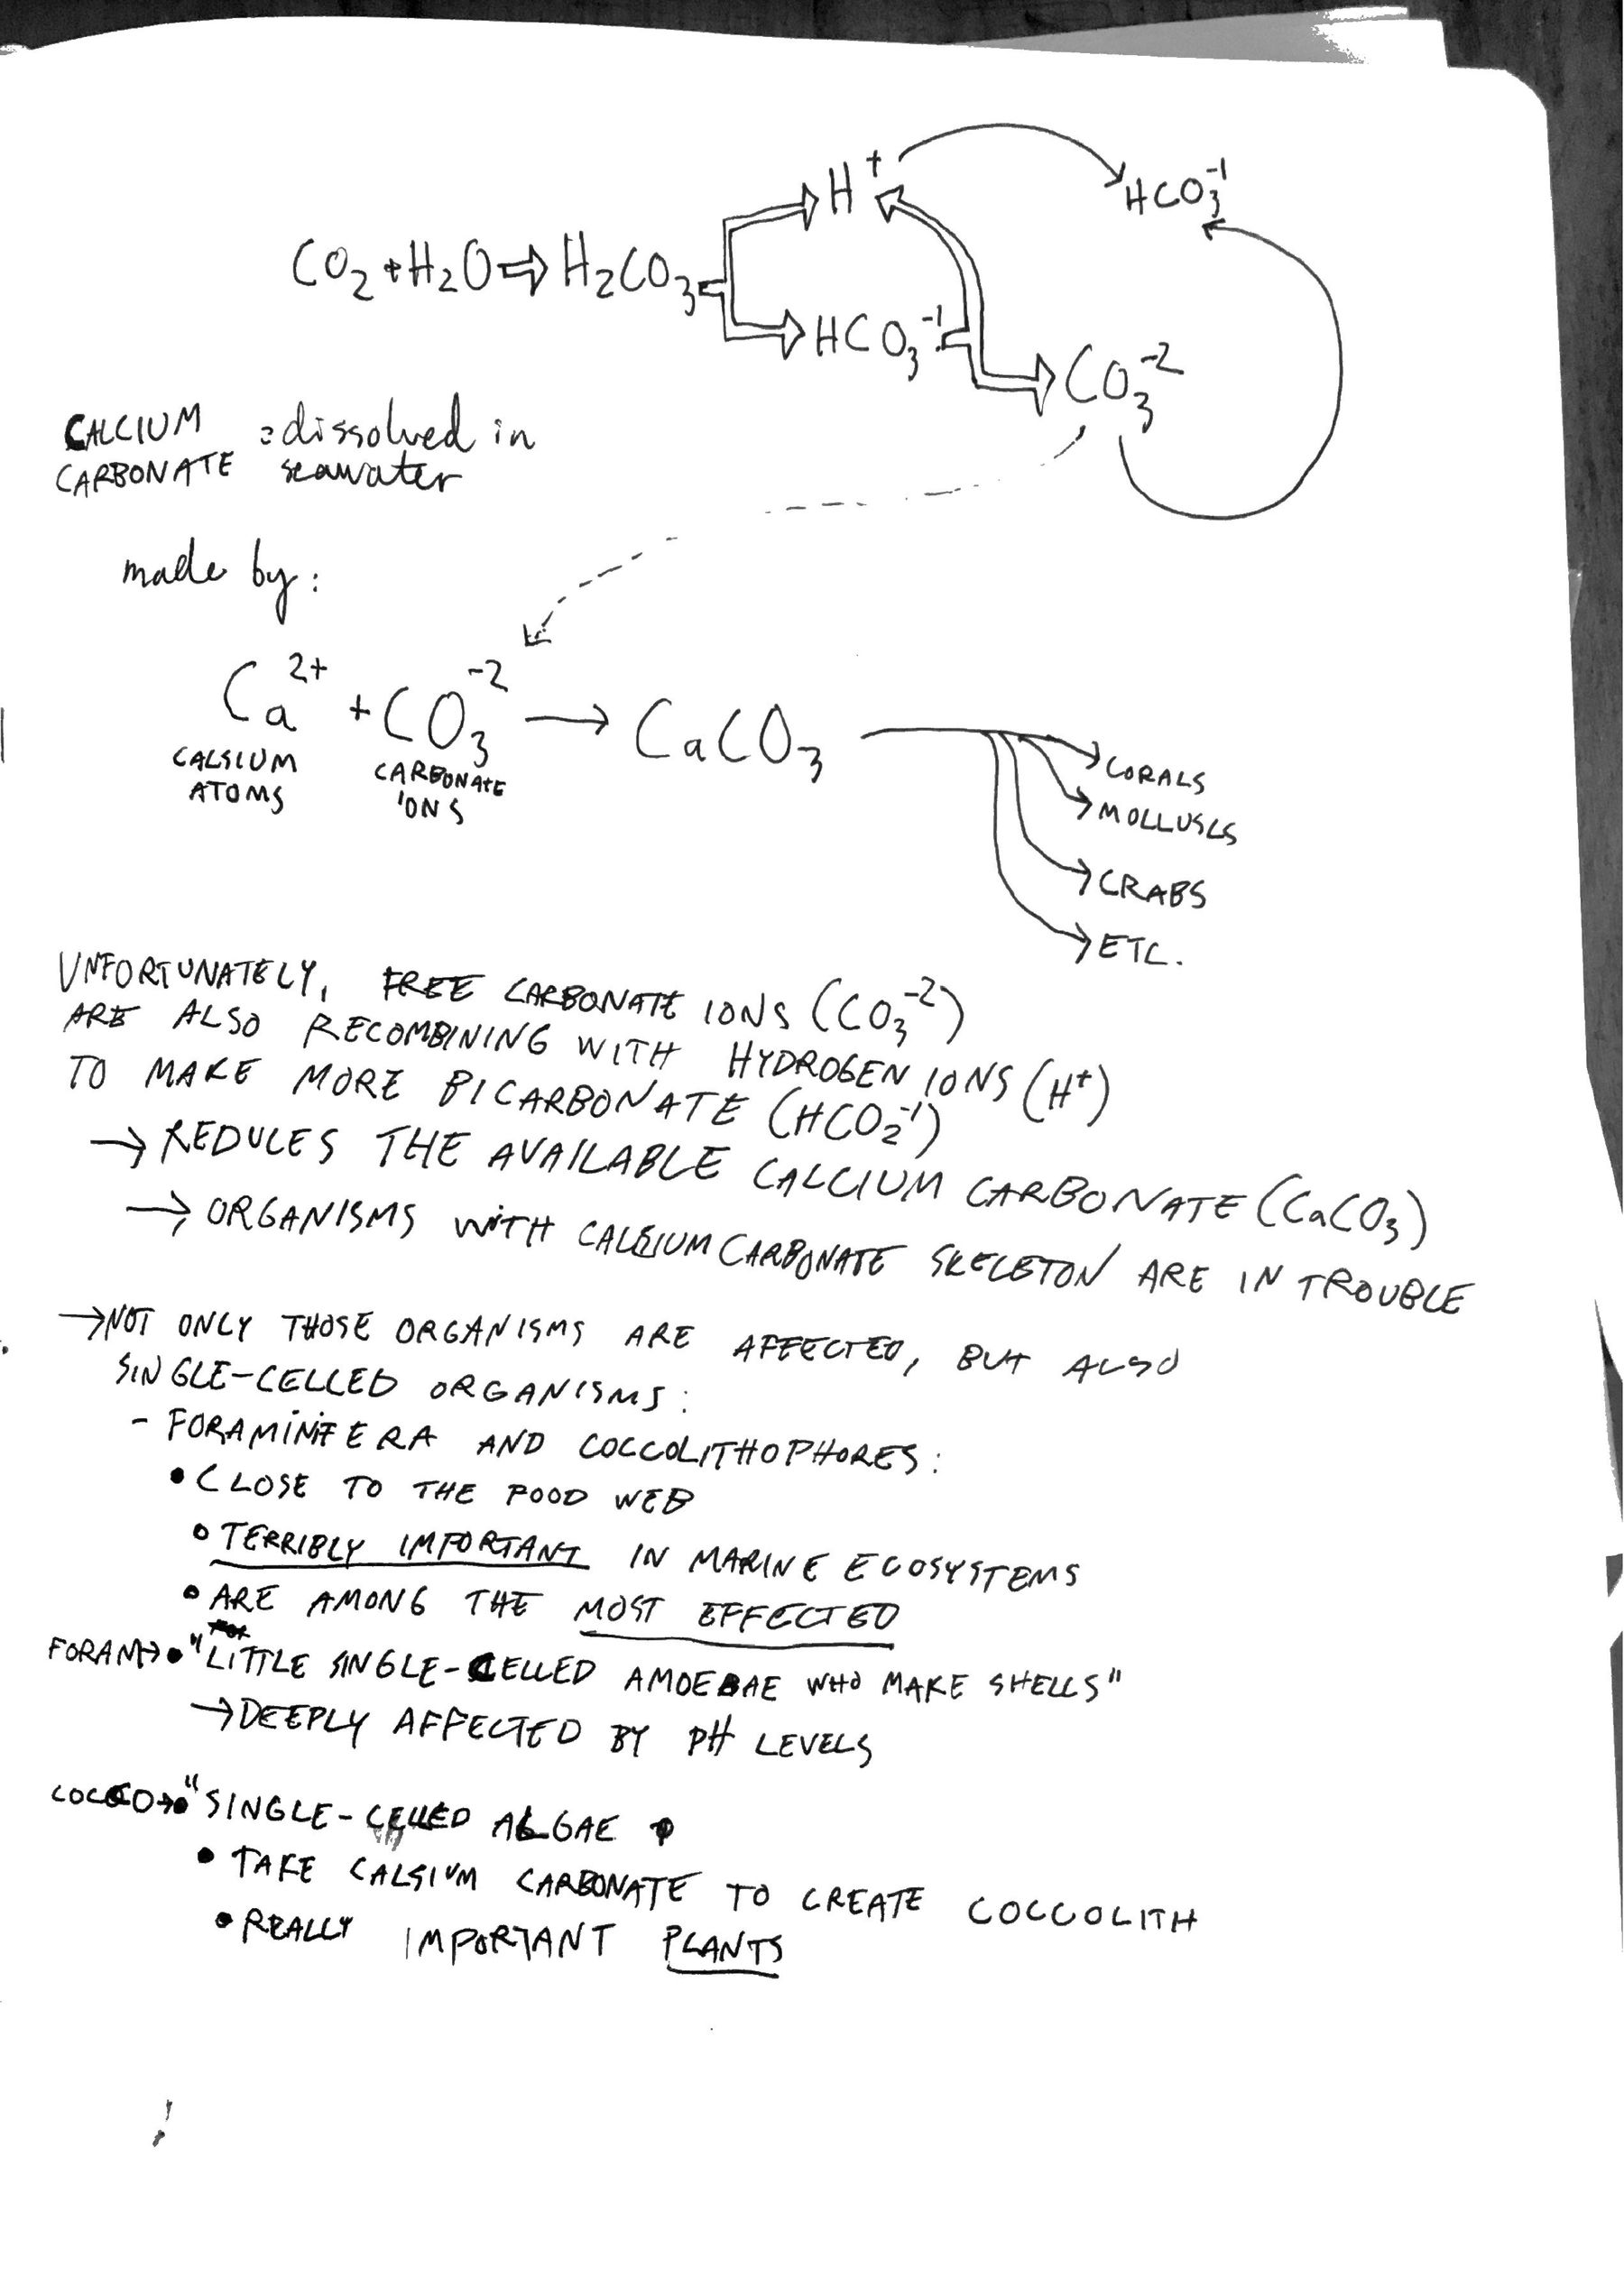 H⁺ HCO₃⁻¹
CO₂ + H₂O ⇒ H₂CO₃
HCO₃⁻¹
CO₃⁻²
CALCIUM CARBONATE = dissolved in
seawater
made by:
Ca²⁺ + CO₃⁻² → CaCO₃
CALSIUM ATOMS
CARBONATE IONS
→ CORALS
→ MOLLUSCS
→ CRABS
→ ETC.
UNFORTUNATELY, FREE CARBONATE IONS (CO₃⁻²)
ARE ALSO RECOMBINING WITH HYDROGEN IONS (H⁺)
TO MAKE MORE BICARBONATE (HCO₂⁻¹)
→ REDUCES THE AVAILABLE CALCIUM CARBONATE (CaCO₃)
→ ORGANISMS WITH CALCIUM CARBONATE SKELETON ARE IN TROUBLE
→ NOT ONLY THOSE ORGANISMS ARE AFFECTED, BUT ALSO
SINGLE-CELLED ORGANISMS:
- FORAMINIFERA AND COCCOLITHOPHORES:
• CLOSE TO THE FOOD WEB
• TERRIBLY IMPORTANT IN MARINE ECOSYSTEMS
• ARE AMONG THE MOST EFFECTED
FORAM → • "LITTLE SINGLE-CELLED AMOEBAE WHO MAKE SHELLS"
→ DEEPLY AFFECTED BY PH LEVELS
COCCO → • "SINGLE-CELLED ALGAE
• TAKE CALSIUM CARBONATE TO CREATE COCCOLITH
• REALLY IMPORTANT PLANTS